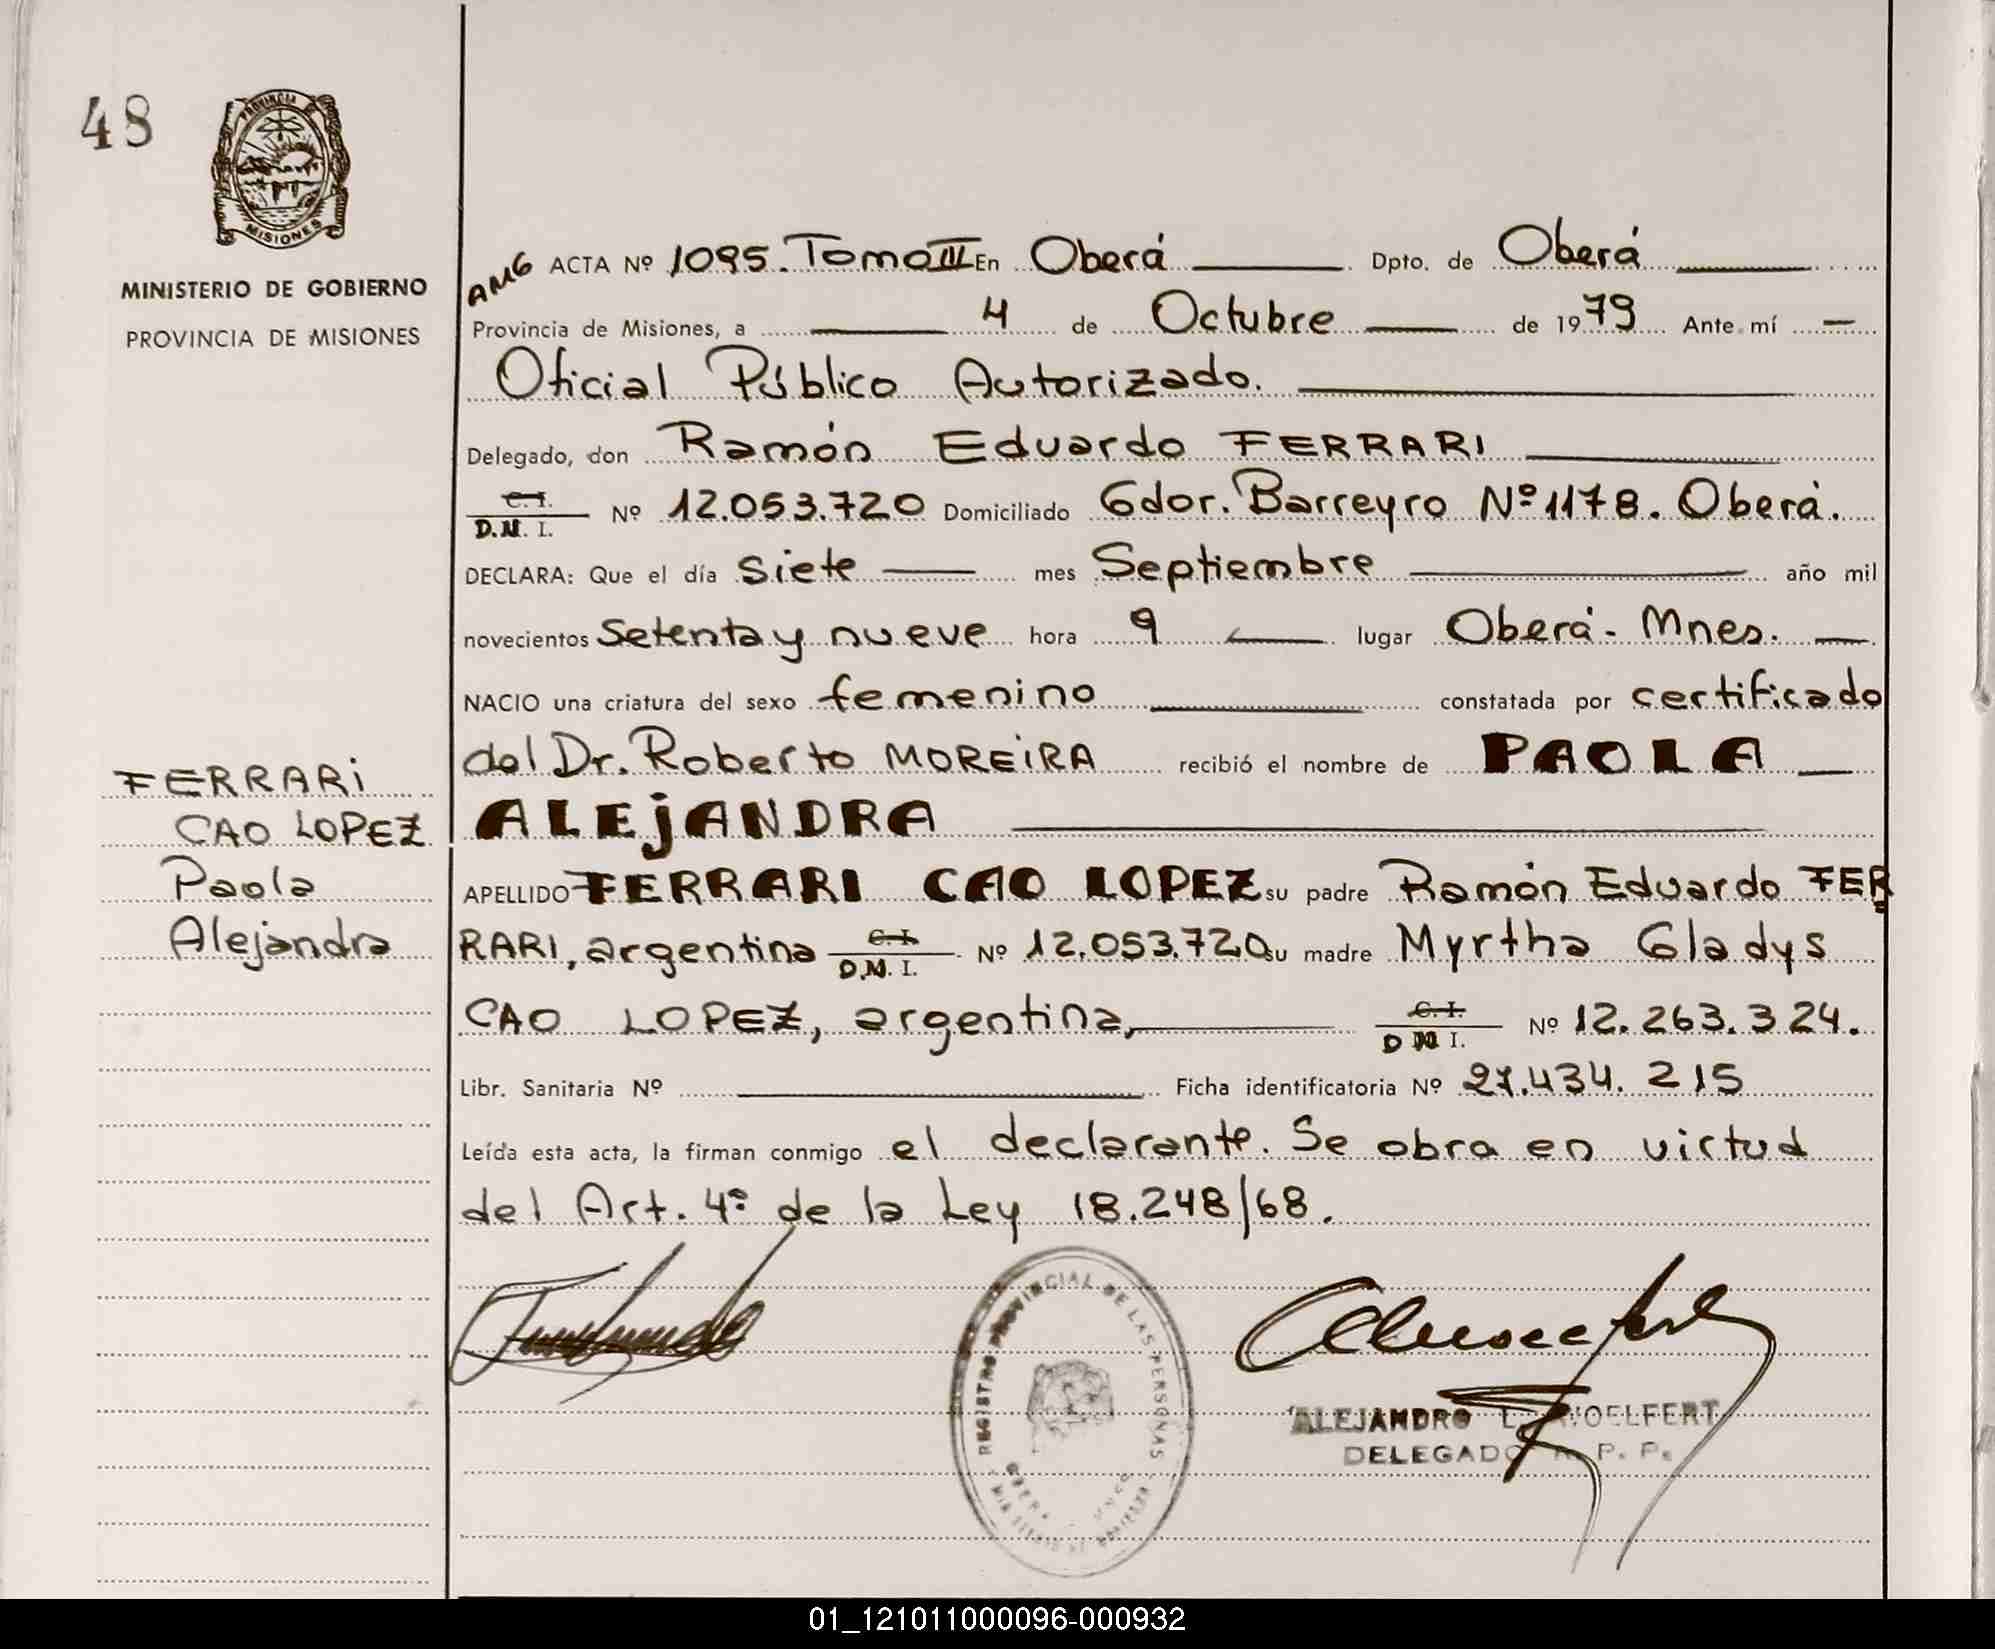 48
PROVINCIA DE
MISIONES
MINISTERIO DE GOBIERNO
PROVINCIA DE MISIONES
AMG ACTA Nº 1095. Tomo III En Oberá Dpto. de Oberá
Provincia de Misiones, a 4 de Octubre de 1979 Ante mí
Oficial Público Autorizado.
Delegado, don Ramón Eduardo FERRARI
C.I.
D.N.I. Nº 12.053.720 Domiciliado Gdor. Barreyro Nº 1178. Oberá.
DECLARA: Que el día siete mes Septiembre año mil
novecientos setenta y nueve hora 9 lugar Oberá - Mnes.
NACIO una criatura del sexo femenino constatada por certificado
del Dr. Roberto MOREIRA recibió el nombre de PAOLA
ALEJANDRA
APELLIDO FERRARI CAO LOPEZ su padre Ramón Eduardo FER
RARI, argentina C.I. D.N.I. Nº 12.053.720 su madre Myrtha Gladys
CAO LOPEZ, argentina, C.I. D N I. Nº 12.263.324.
Libr. Sanitaria Nº Ficha identificatoria Nº 27.434.215
Leída esta acta, la firman conmigo el declarante. Se obra en virtud
del Art. 4º de la Ley 18.248/68.
FERRARI
CAO LOPEZ
Paola
Alejandra
REGISTRO PROVINCIAL DE LAS PERSONAS
ALEJANDRO WOELFERT
DELEGADO R. P. P.
01_121011000096-000932